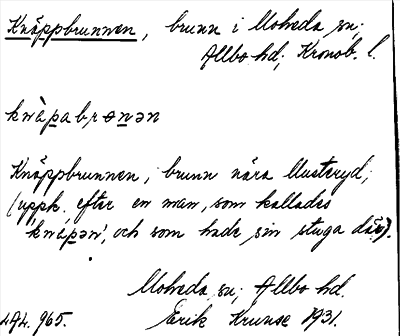 Knäppbrunnen, brunn i Moheda sn;
Allbo hd; Kronob. l.
knäpabrɵnən
Knäppbrunnen, brunn nära Musteryd,
(uppk. efter en man, som kallades
'knäpən', och som hade sin stuga där).
Moheda sn; Allbo hd.
Erik Krunse 1931.